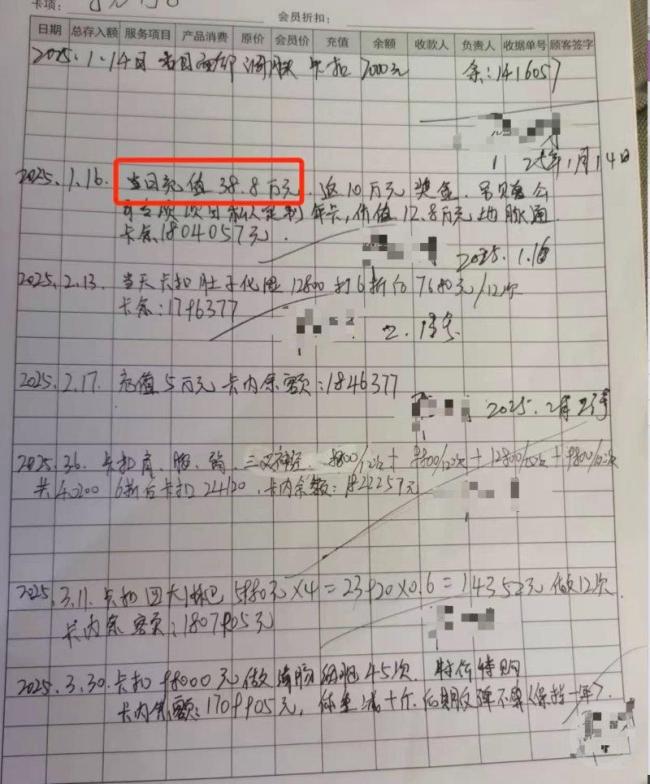 卡项：
会员折扣：
日期 总存入额 服务项目 产品消费 原价 会员价 充值 余额 收款人 负责人 收据单号 顾客签字
2025.1.14日 当日 卡扣 7000元 余：1416057
25年1月14日
2025.1.16. 当日充值38.8万元. 返10万元奖金.
年卡,价值12.8万元
卡余1804057元.
2025.1.16
2025.2.13. 当天卡扣肚子 12800打6折后7680元/12次
卡余：1796377
2.13号
2025.2.17. 充值5万元 卡内余额：1846377
2025.2月
2025.3.6. 卡扣肩、腿、 三叉神经. 9800/12次+9800/12次+12800/12次+9800/12次
共40200 6折后卡扣24120.卡内余额：1822257元
2025.3.11.卡扣四大淋巴5980元×4=23920×0.6=14352元 做12次.
卡内余额：1807905元
2025.3.30.卡扣98000元做 45次.特价特购
卡内余额：1709905元, 体重减十斤.后期反弹不算(保持一年).